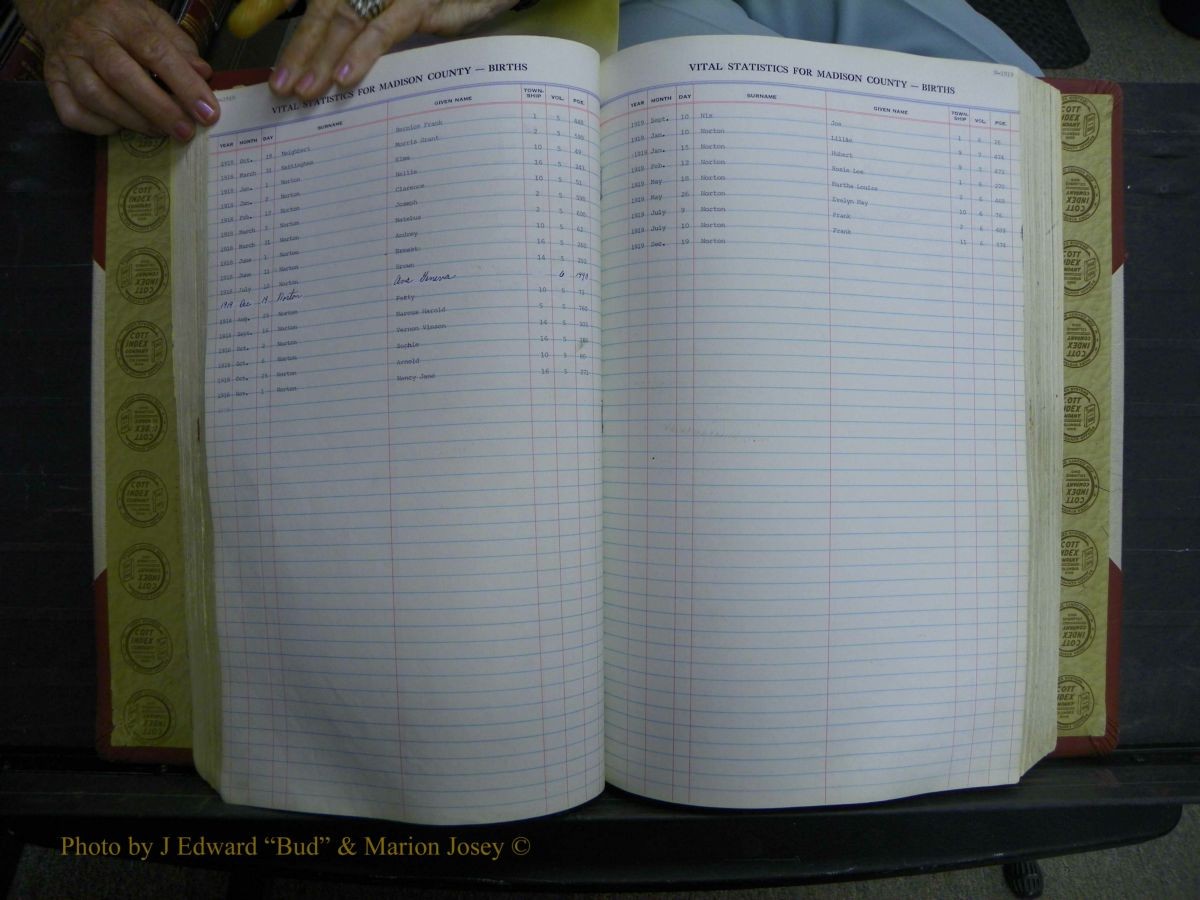 VITAL STATISTICS FOR MADISON COUNTY — BIRTHS
YEAR MONTH DAY SURNAME GIVEN NAME TOWN-SHIP VOL. PGE.
1918 Oct. 18 Neighbers Bernice Frank 1 5
1918 March 31 Morris Grant 2 5
1918 Jan. 1 Norton Elma 10 5 49
1918 Jan. 2 Norton Nellie 16 5 241
1918 Feb. 12 Norton Clarence 10 5 51
1918 March 2 Norton Joseph 2 5
1918 March 21 Norton 2 5 600
1918 June 1 Norton Audrey 10 5 62
1918 June 11 Norton Ernest 16 5
1918 July 10 Norton Brown 14 5
1919 Dec 19 Norton Ava Geneva 6
1918 Aug. Norton Patty 10 5 73
1918 Sept. 16 Norton Marcus Harold 5 5 760
1918 Oct. 2 Norton Vernon Vinson 16 5 301
1918 Oct. 6 Norton Sophie 16 5
1918 Oct. 24 Norton Arnold 10 5
1918 Nov. 1 Norton Nancy Jane 16 5 271
N-1919
VITAL STATISTICS FOR MADISON COUNTY — BIRTHS
YEAR MONTH DAY SURNAME GIVEN NAME TOWN-SHIP VOL. PGE.
1919 Sept. 10 Nix Joe 1 6 26
1919 Jan. 10 Norton Lillie 9
1919 Jan. 15 Norton Hubert 9
1919 Feb. 12 Norton Roxie Lee 1 6
1919 May 18 Norton Burtha Louise 2 6
1919 May 26 Norton Evelyn May 10 6 76
1919 July 9 Norton Frank 2 6
1919 July 10 Norton Frank 11 6
1919 Dec. 19 Norton
COTT INDEX COMPANY
Photo by J Edward “Bud” & Marion Josey ©